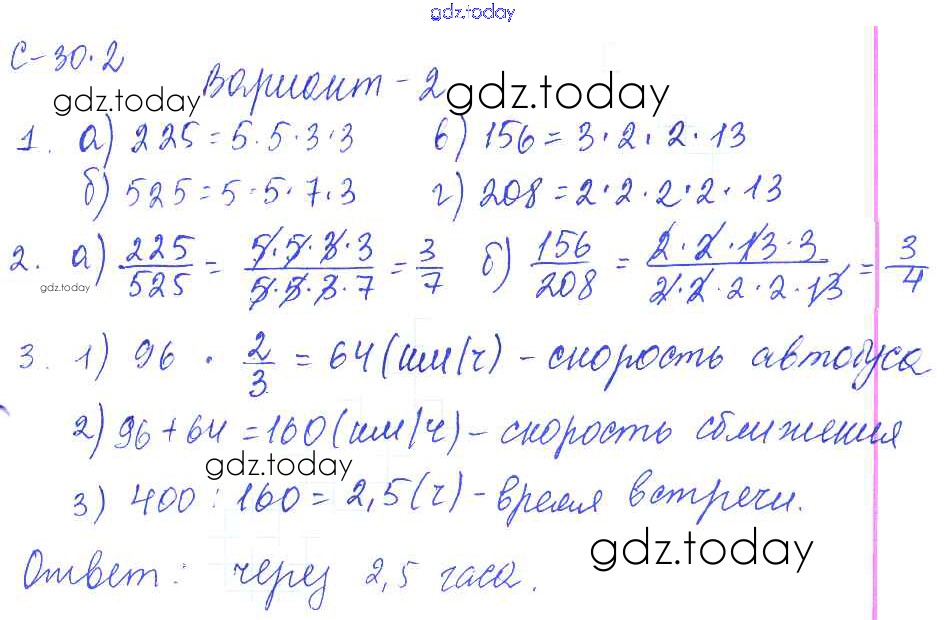 gdz.today
С-30.2
Вариант - 2
gdz.today gdz.today
1. а) 225 = 5·5·3·3 в) 156 = 3·2·2·13
б) 525 = 5·5·7·3 г) 208 = 2·2·2·2·13
2. а) 225/525 = 5·5·3·3/5·5·3·7 = 3/7 б) 156/208 = 2·2·13·3/2·2·2·2·13 = 3/4
gdz.today
3. 1) 96 · 2/3 = 64 (км/ч) - скорость автобуса
2) 96 + 64 = 160 (км/ч) - скорость сближения
gdz.today
3) 400 : 160 = 2,5 (ч) - время встречи.
gdz.today
Ответ: через 2,5 часа.